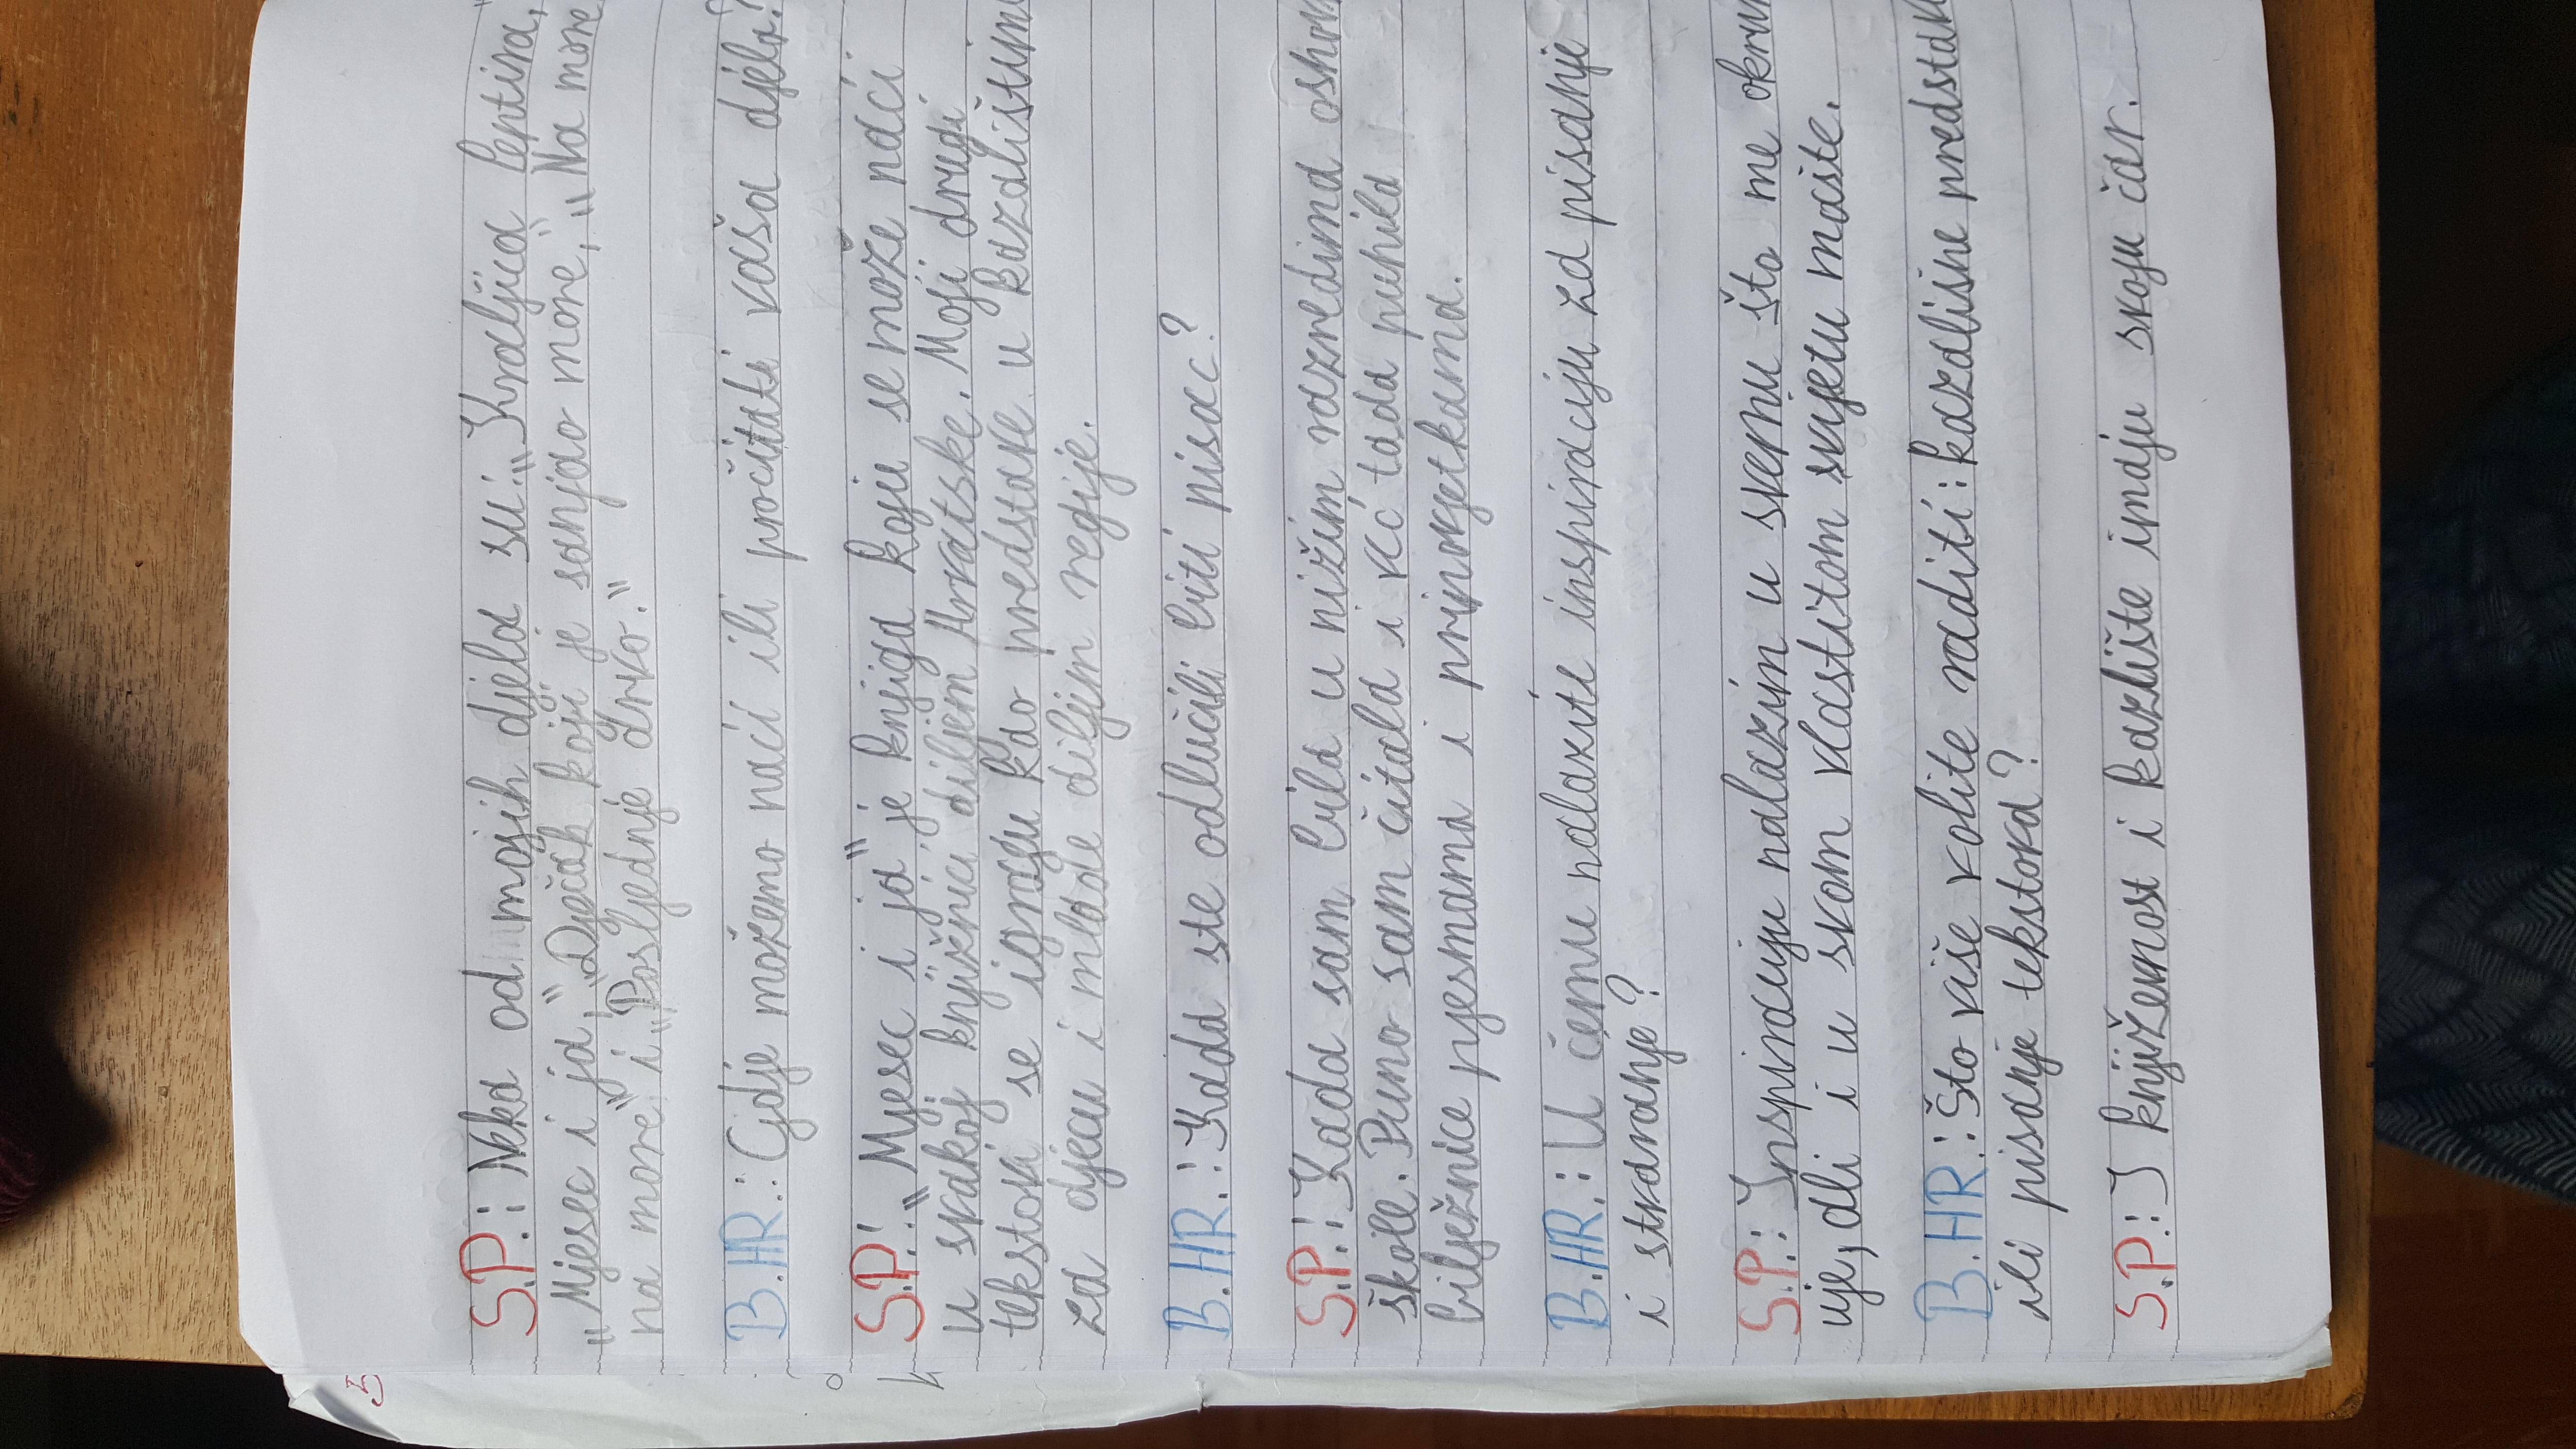 S.P.: Neka od mojih djela su: "Kraljica Peptira,"
"Mjesec i ja", "Dječak koji je sanjao more," "Na more
na more" i "Posljednje drvo."
B.HR.: Gdje možemo naći ili pročitati vaša djela?
S.P.: "Mjesec i ja" je knjiga koju se može naći
u svakoj knjižnici diljem Hrvatske. Moji drugi
tekstovi se igraju kao predstave u kazalištim
za djecu i mlade diljem regije.
B.HR.: Kada ste odlučili biti pisac?
S.P.: Kada sam bila u nižim razredima osnovn
škole. Puno sam čitala i već tada punila
bilježnice pjesmama i pripovjetkama.
B.HR.: U čemu nalazite inspiraciju za pisanje
i stvaranje?
S.P.: Inspiraciju nalazim u svemu što me okruž
uje, ali i u svom vlastitom svijetu mašte.
B.HR.: Što više volite raditi: kazališne predstave
ili pisanje tekstova?
S.P.: I književnost i kazlište imaju svoju čar.